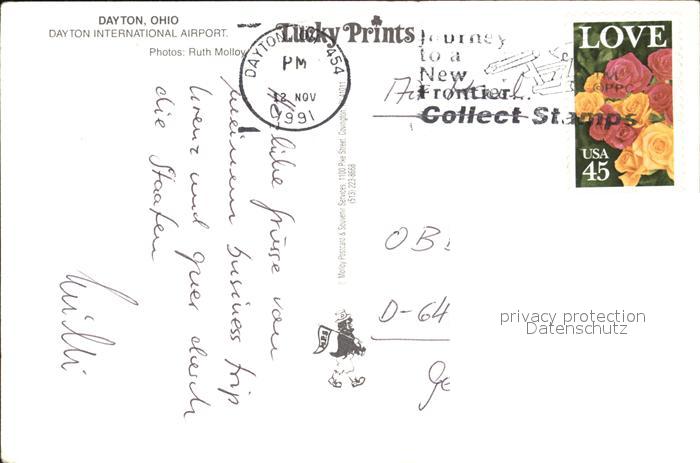 DAYTON, OHIO
DAYTON INTERNATIONAL AIRPORT.
Photos: Ruth Molloy
Lucky Prints
DAYTON 454
PM
12 NOV
1991
Journey
to a
New
Frontier
Collect Stamps
LOVE
USA
45
©PPC
Herzliche Grüsse von
meinem business trip
kreuz und quer durch
die Staaten
Molloy Postcard & Souvenir Services 1100 Pike Street, Covington
(513) 223-8658
OB
D-64
Ge
privacy protection
Datenschutz